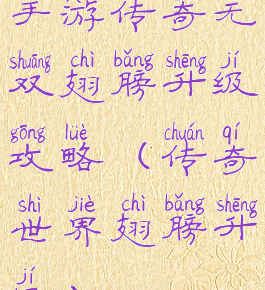 手游传奇无
shuāng chì bǎng shēng jí
双翅膀升级
gōng lüè chuán qí
攻略（传奇
shì jiè chì bǎng shēng
世界翅膀升
jí